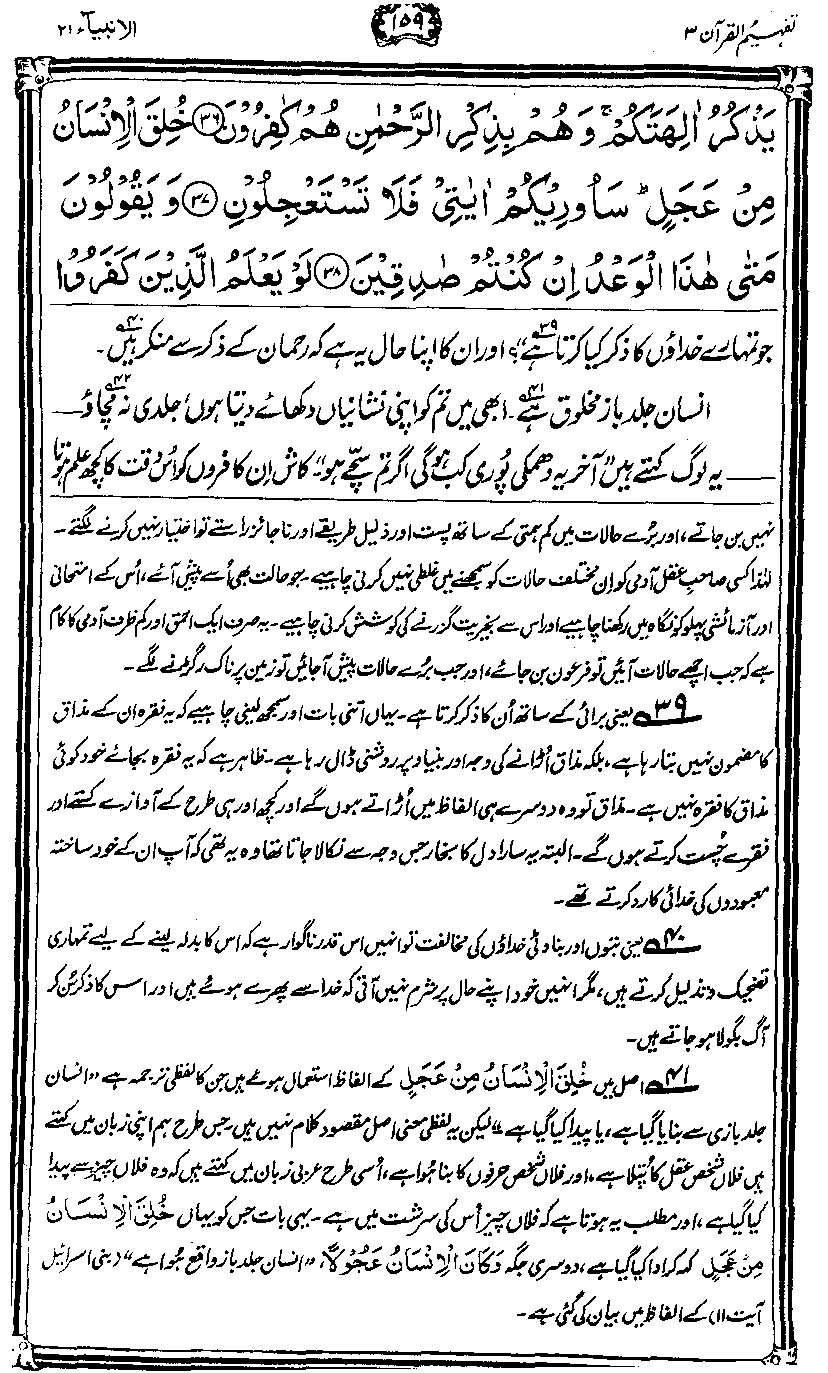 تفہیم القرآن ۳
۱۵۹
الانبیآء ۲۱
يَذْكُرُ اٰلِهَتَكُمْ ۚ وَهُمْ بِذِكْرِ الرَّحْمٰنِ هُمْ كٰفِرُوْنَ ۝۳۶ خُلِقَ الْاِنْسَانُ
مِنْ عَجَلٍ ؕ سَاُورِيْكُمْ اٰيٰتِيْ فَلَا تَسْتَعْجِلُوْنِ ۝۳۷ وَيَقُوْلُوْنَ
مَتٰى هٰذَا الْوَعْدُ اِنْ كُنْتُمْ صٰدِقِيْنَ ۝۳۸ لَوْ يَعْلَمُ الَّذِيْنَ كَفَرُوْا
جو تمہارے خداؤں کا ذکر کیا کرتا ہے"؟ ۳۹ اور ان کا اپنا حال یہ ہے کہ رحمان کے ذکر سے منکر ہیں۔ ۴۰
انسان جلد باز مخلوق ہے۔ ۴۱ ابھی میں تم کو اپنی نشانیاں دکھائے دیتا ہوں، جلدی نہ مچاؤ ۴۲ ــــ
ــــ یہ لوگ کہتے ہیں "آخر یہ دھمکی پوری کب ہو گی اگر تم سچے ہو"۔ کاش ان کافروں کو اُس وقت کا کچھ علم ہوتا
نہیں بن جاتے، اور بُرے حالات میں کم ہمتی کے ساتھ پست اور ذلیل طریقے اور ناجائز راستے تو اختیار نہیں کرنے لگتے۔
لہٰذا کسی صاحبِ عقل آدمی کو اِن مختلف حالات کو سمجھنے میں غلطی نہیں کرنی چاہیے۔ جو حالت بھی اُسے پیش آئے، اُس کے امتحانی
اور آزمائشی پہلو کو نگاہ میں رکھنا چاہیے اور اس سے بخیریت گزرنے کی کوشش کرنی چاہیے۔ یہ صرف ایک احمق اور کم ظرف آدمی کا کام
ہے کہ جب اچھے حالات آئیں تو فرعون بن جائے، اور جب بُرے حالات پیش آجائیں تو زمین پر ناک رگڑنے لگے۔
۳۹ یعنی برائی کے ساتھ اُن کا ذکر کرتا ہے۔ یہاں اتنی بات اور سمجھ لینی چاہیے کہ یہ فقرہ ان کے مذاق
کا مضمون نہیں بتا رہا ہے، بلکہ مذاق اُڑانے کی وجہ اور بنیاد پر روشنی ڈال رہا ہے۔ ظاہر ہے کہ یہ فقرہ بجائے خود کوئی
مذاق کا فقرہ نہیں ہے۔ مذاق تو وہ دوسرے ہی الفاظ میں اُڑاتے ہوں گے اور کچھ اور ہی طرح کے آوازے کستے اور
فقرے چُست کرتے ہوں گے۔ البتہ یہ سارا دل کا بخار جس وجہ سے نکالا جاتا تھا وہ یہ تھی کہ آپ ان کے خود ساختہ
معبودوں کی خدائی کا رد کرتے تھے۔
۴۰ یعنی بتوں اور بناوٹی خداؤں کی مخالفت تو انہیں اس قدر ناگوار ہے کہ اس کا بدلہ لینے کے لیے تمہاری
تضحیک و تذلیل کرتے ہیں، مگر انہیں خود اپنے حال پر شرم نہیں آتی کہ خدا سے پھرے ہوئے ہیں اور اس کا ذکر سُن کر
آگ بگولا ہو جاتے ہیں۔
۴۱ اصل میں خُلِقَ الْاِنْسَانُ مِنْ عَجَلٍ کے الفاظ استعمال ہوئے ہیں جن کا لفظی ترجمہ ہے "انسان
جلد بازی سے بنایا گیا ہے، یا پیدا کیا گیا ہے"۔ لیکن یہ لفظی معنی اصل مقصودِ کلام نہیں ہیں۔ جس طرح ہم اپنی زبان میں کہتے
ہیں فلاں شخص عقل کا پُتلا ہے، اور فلاں شخص حرفوں کا بنا ہُوا ہے، اُسی طرح عربی زبان میں کہتے ہیں کہ وہ فلاں چیز سے پیدا
کیا گیا ہے، اور مطلب یہ ہوتا ہے کہ فلاں چیز اُس کی سرشت میں ہے۔ یہی بات جس کو یہاں خُلِقَ الْاِنْسَانُ
مِنْ عَجَلٍ کہہ کر ادا کیا گیا ہے، دوسری جگہ وَكَانَ الْاِنْسَانُ عَجُوْلًا، "انسان جلد باز واقع ہُوا ہے" (بنی اسرائیل
آیت ۱۱) کے الفاظ میں بیان کی گئی ہے۔